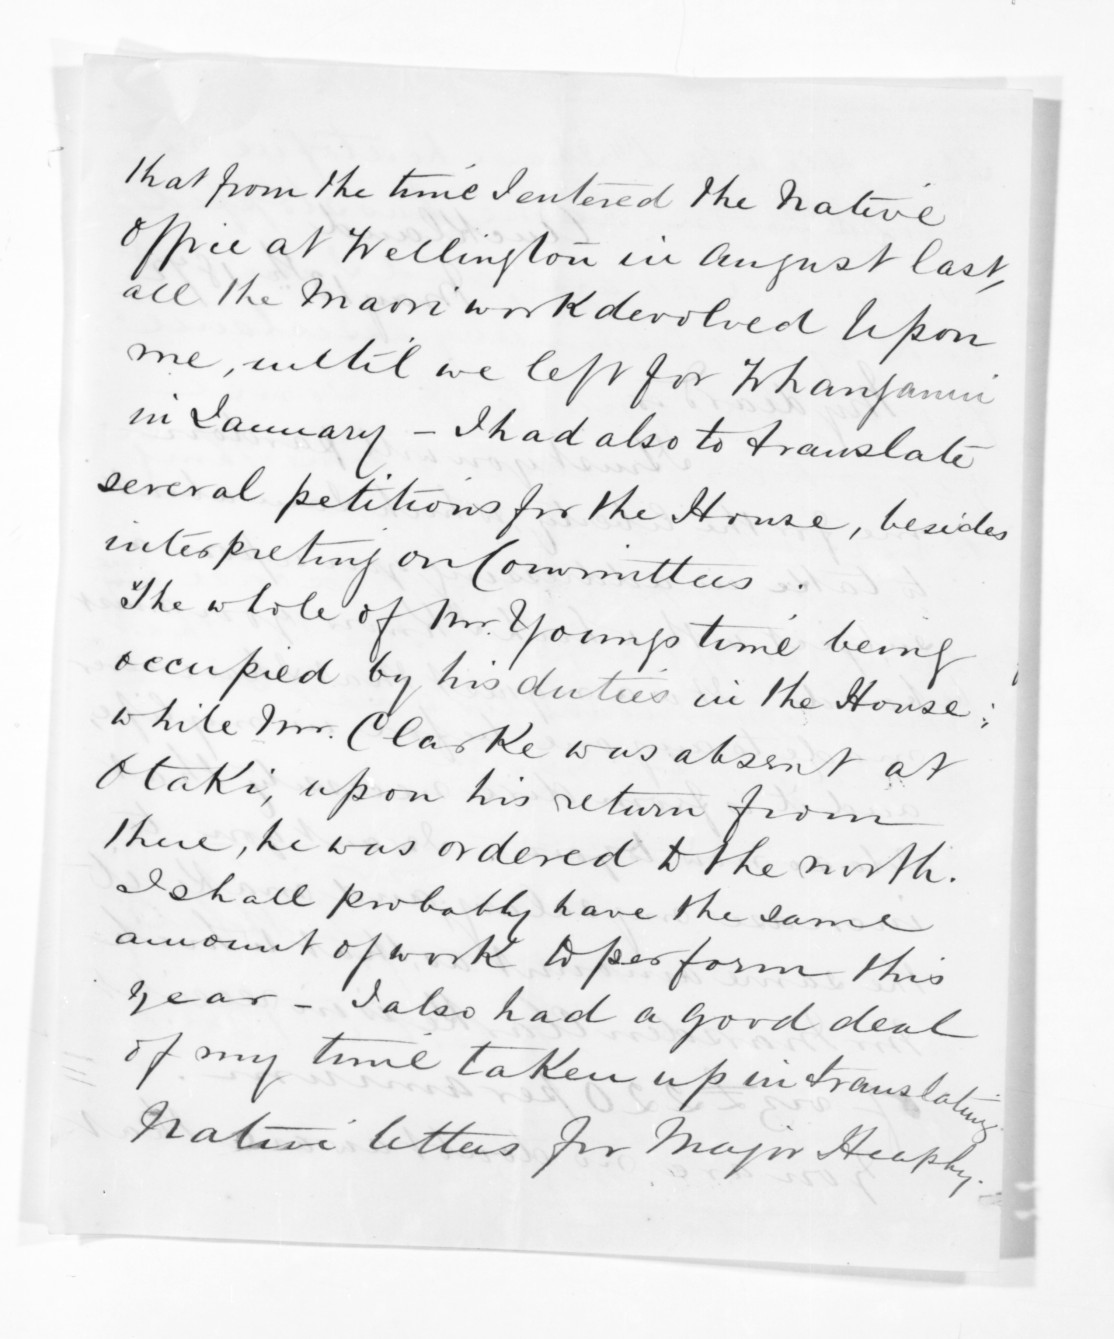 that from the time I entered the Native
Office at Wellington in August last,
all the Maori work devolved Upon
me, until we left for Whanganui
in January - I had also to translate
several petitions for the House, besides
interpreting on Committees.
The whole of Mr. Youngs time being
occupied by his duties in the House;
while Mr. Clarke was absent at
Otaki, upon his return from
there, he was ordered to the north.
I shall probably have the same
amount of work to perform this
year - I also had a good deal
of my time taken up in translating
Native letters for Major Heaphy.